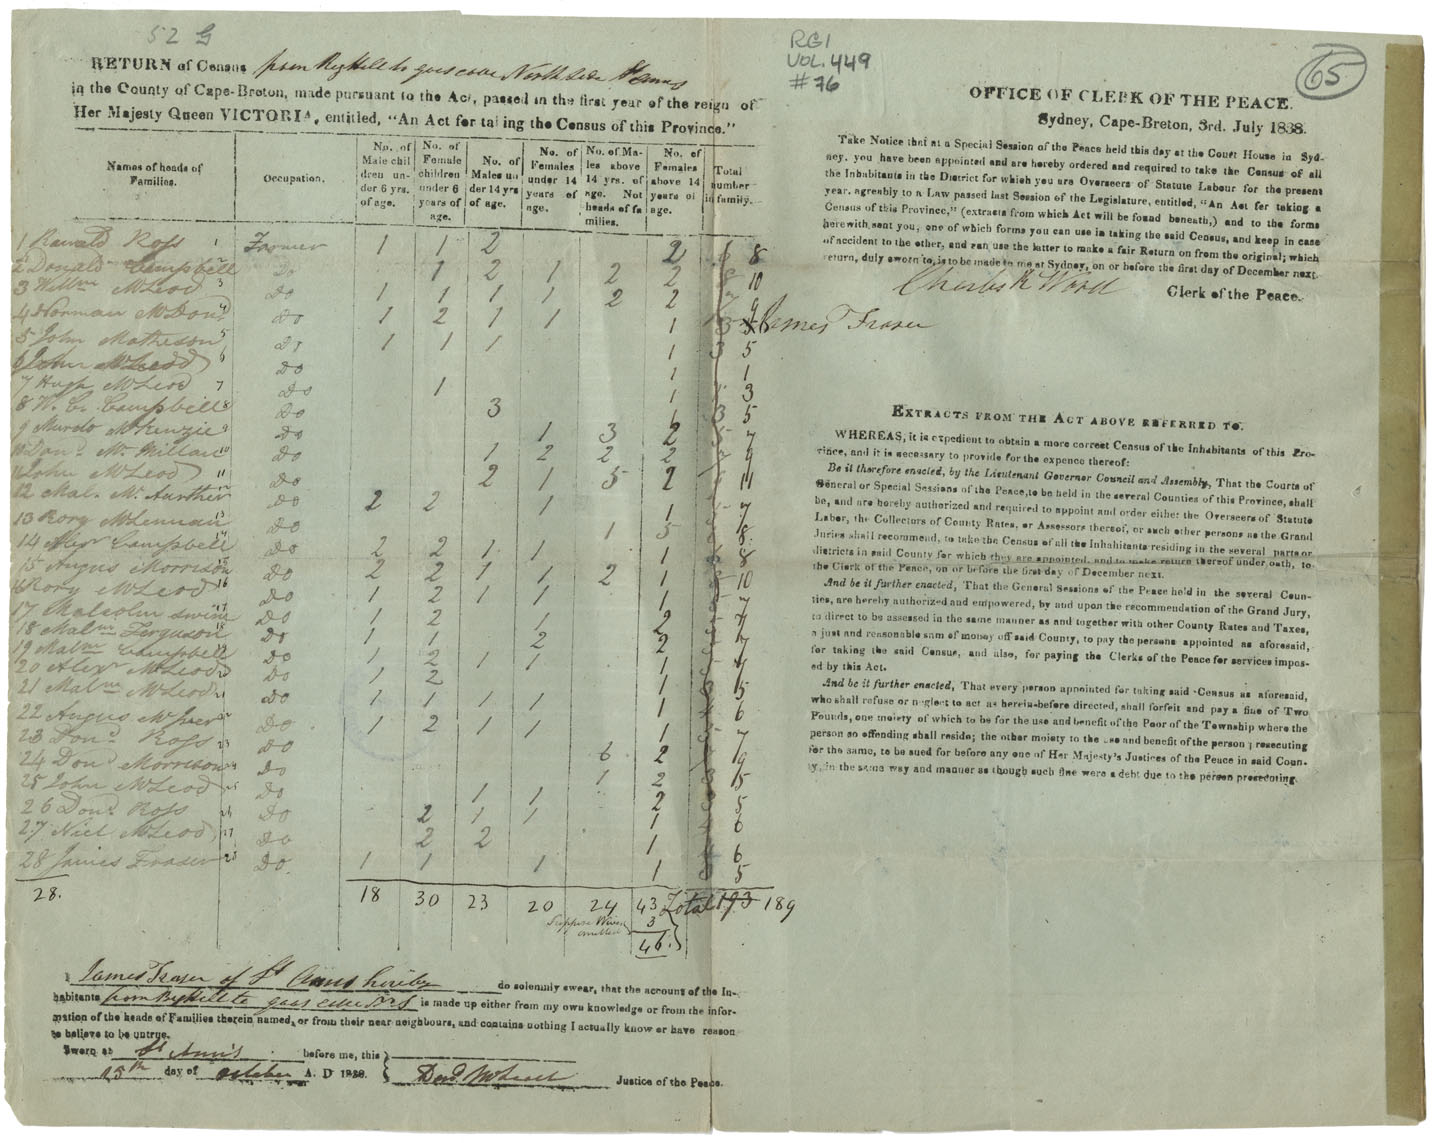 52 G
RETURN of Census from to North Side St Anns
in the County of Cape-Breton, made pursuant to the Act, passed in the first year of the reign of
Her Majesty Queen VICTORIA, entitled, "An Act for taking the Census of this Province."
Names of heads of Families.
Occupation.
No. of Male children under 6 yrs. of age.
No. of Female children under 6 years of age.
No. of Males under 14 yrs of age.
No. of Females under 14 years of age.
No. of Males above 14 yrs. of age. Not heads of families.
No. of Females above 14 years of age.
Total number in family.
1 Ronald Ross 1 Farmer 1 1 2 2 6 8
2 Donald Campbell 2 Do 1 2 1 2 2 8 10
3 Willm McLeod 3 Do 1 1 1 1 2 2 9
4 Norman 4 Do 1 2 1 1 1
5 John Matheson 5 Do 1 1 1 1 3 5
6 John McLeod 6 Do 1 1
7 Hugh McLeod 7 Do 1 1 3
8 W. C. Campbell 8 Do 3 1 3 5
9 Murdo McKenzie 9 Do 1 3 2 7
10 Dond McMillan 10 Do 1 2 2 2 9
11 John McLeod 11 Do 2 1 5 2 11
12 Mal. 12 Do 2 2 1 1 7
13 Rory McLennan 13 Do 1 5
14 Alexr Campbell 14 Do 2 2 1 1 1 8
15 Angus Morrison 15 Do 2 2 1 1 2 1 10
16 Rory McLeod 16 Do 1 2 1 1 1 7
17 Malcolm 17 Do 1 2 1 2 7
18 Malm Ferguson 18 Do 1 1 2 2 7
19 Malm Campbell Do 1 2 1 1 1 7
20 Alexr McLeod Do 1 2 1 5
21 Malm McLeod 21 Do 1 1 1 1 1 6
22 Angus Do 1 2 1 1 1 7
23 Dond Ross 23 Do 6 2 9
24 Dond Morrison 24 Do 1 2 3 5
25 John McLeod 25 Do 1 1 2 5
26 Dond Ross 26 Do 2 1 1 1 6
27 Niel McLeod 27 Do 2 2 1 6
28 James Fraser 28 Do. 1 1 1 1 5
28. 18 30 23 20 24 43 Total 193 189
Suppose Wives omitted } 3
46
I James Fraser of St Anns hereby do solemnly swear, that the account of the In-
habitants from to is made up either from my own knowledge or from the infor-
mation of the heads of Families therein named, or from their near neighbours, and contains nothing I actually know or have reason
to believe to be untrue.
Sworn at St Ann's before me, this
15th day of october A. D 1838. Justice of the Peace.
RG1
VOL. 449
#76
65
OFFICE OF CLERK OF THE PEACE.
Sydney, Cape-Breton, 3rd. July 1838.
Take Notice that at a Special Session of the Peace held this day at the Court House in Syd-
ney, you have been appointed and are hereby ordered and required to take the Census of all
the Inhabitants in the District for which you are Overseers of Statute Labour for the present
year, agreably to a Law passed last Session of the Legislature, entitled, "An Act for taking a
Census of this Province," (extracts from which Act will be found beneath,) and to the forms
herewith sent you, one of which forms you can use in taking the said Census, and keep in case
of accident to the other, and can use the latter to make a fair Return on from the original; which
return, duly sworn to, is to be made to me at Sydney, on or before the first day of December next.
Charles R Ward Clerk of the Peace.
James Fraser
EXTRACTS FROM THE ACT ABOVE REFERRED TO.
WHEREAS, it is expedient to obtain a more correct Census of the Inhabitants of this Pro-
vince, and it is necessary to provide for the expence thereof:
Be it therefore enacted, by the Lieutenant Governor Council and Assembly, That the Courts of
General or Special Sessions of the Peace, to be held in the several Counties of this Province, shall
be, and are hereby authorized and required to appoint and order either the Overseers of Statute
Labor, the Collectors of County Rates, or Assessors thereof, or such other persons as the Grand
Juries shall recommend, to take the Census of all the Inhabitants residing in the several parts or
districts in said County for which they are appointed, and to make return thereof under oath, to
the Clerk of the Peace, on or before the first day of December next.
And be it further enacted, That the General Sessions of the Peace held in the several Coun-
ties, are hereby authorized and empowered, by and upon the recommendation of the Grand Jury,
to direct to be assessed in the same manner as and together with other County Rates and Taxes,
a just and reasonable sum of money off said County, to pay the persons appointed as aforesaid,
for taking the said Census, and also, for paying the Clerks of the Peace for services impos-
ed by this Act.
And be it further enacted, That every person appointed for taking said Census as aforesaid,
who shall refuse or neglect to act as herein-before directed, shall forfeit and pay a fine of Two
Pounds, one moiety of which to be for the use and benefit of the Poor of the Township where the
person so offending shall reside; the other moiety to the use and benefit of the person prosecuting
for the same, to be sued for before any one of Her Majesty's Justices of the Peace in said Coun-
ty, in the same way and manner as though such fine were a debt due to the person prosecuting.